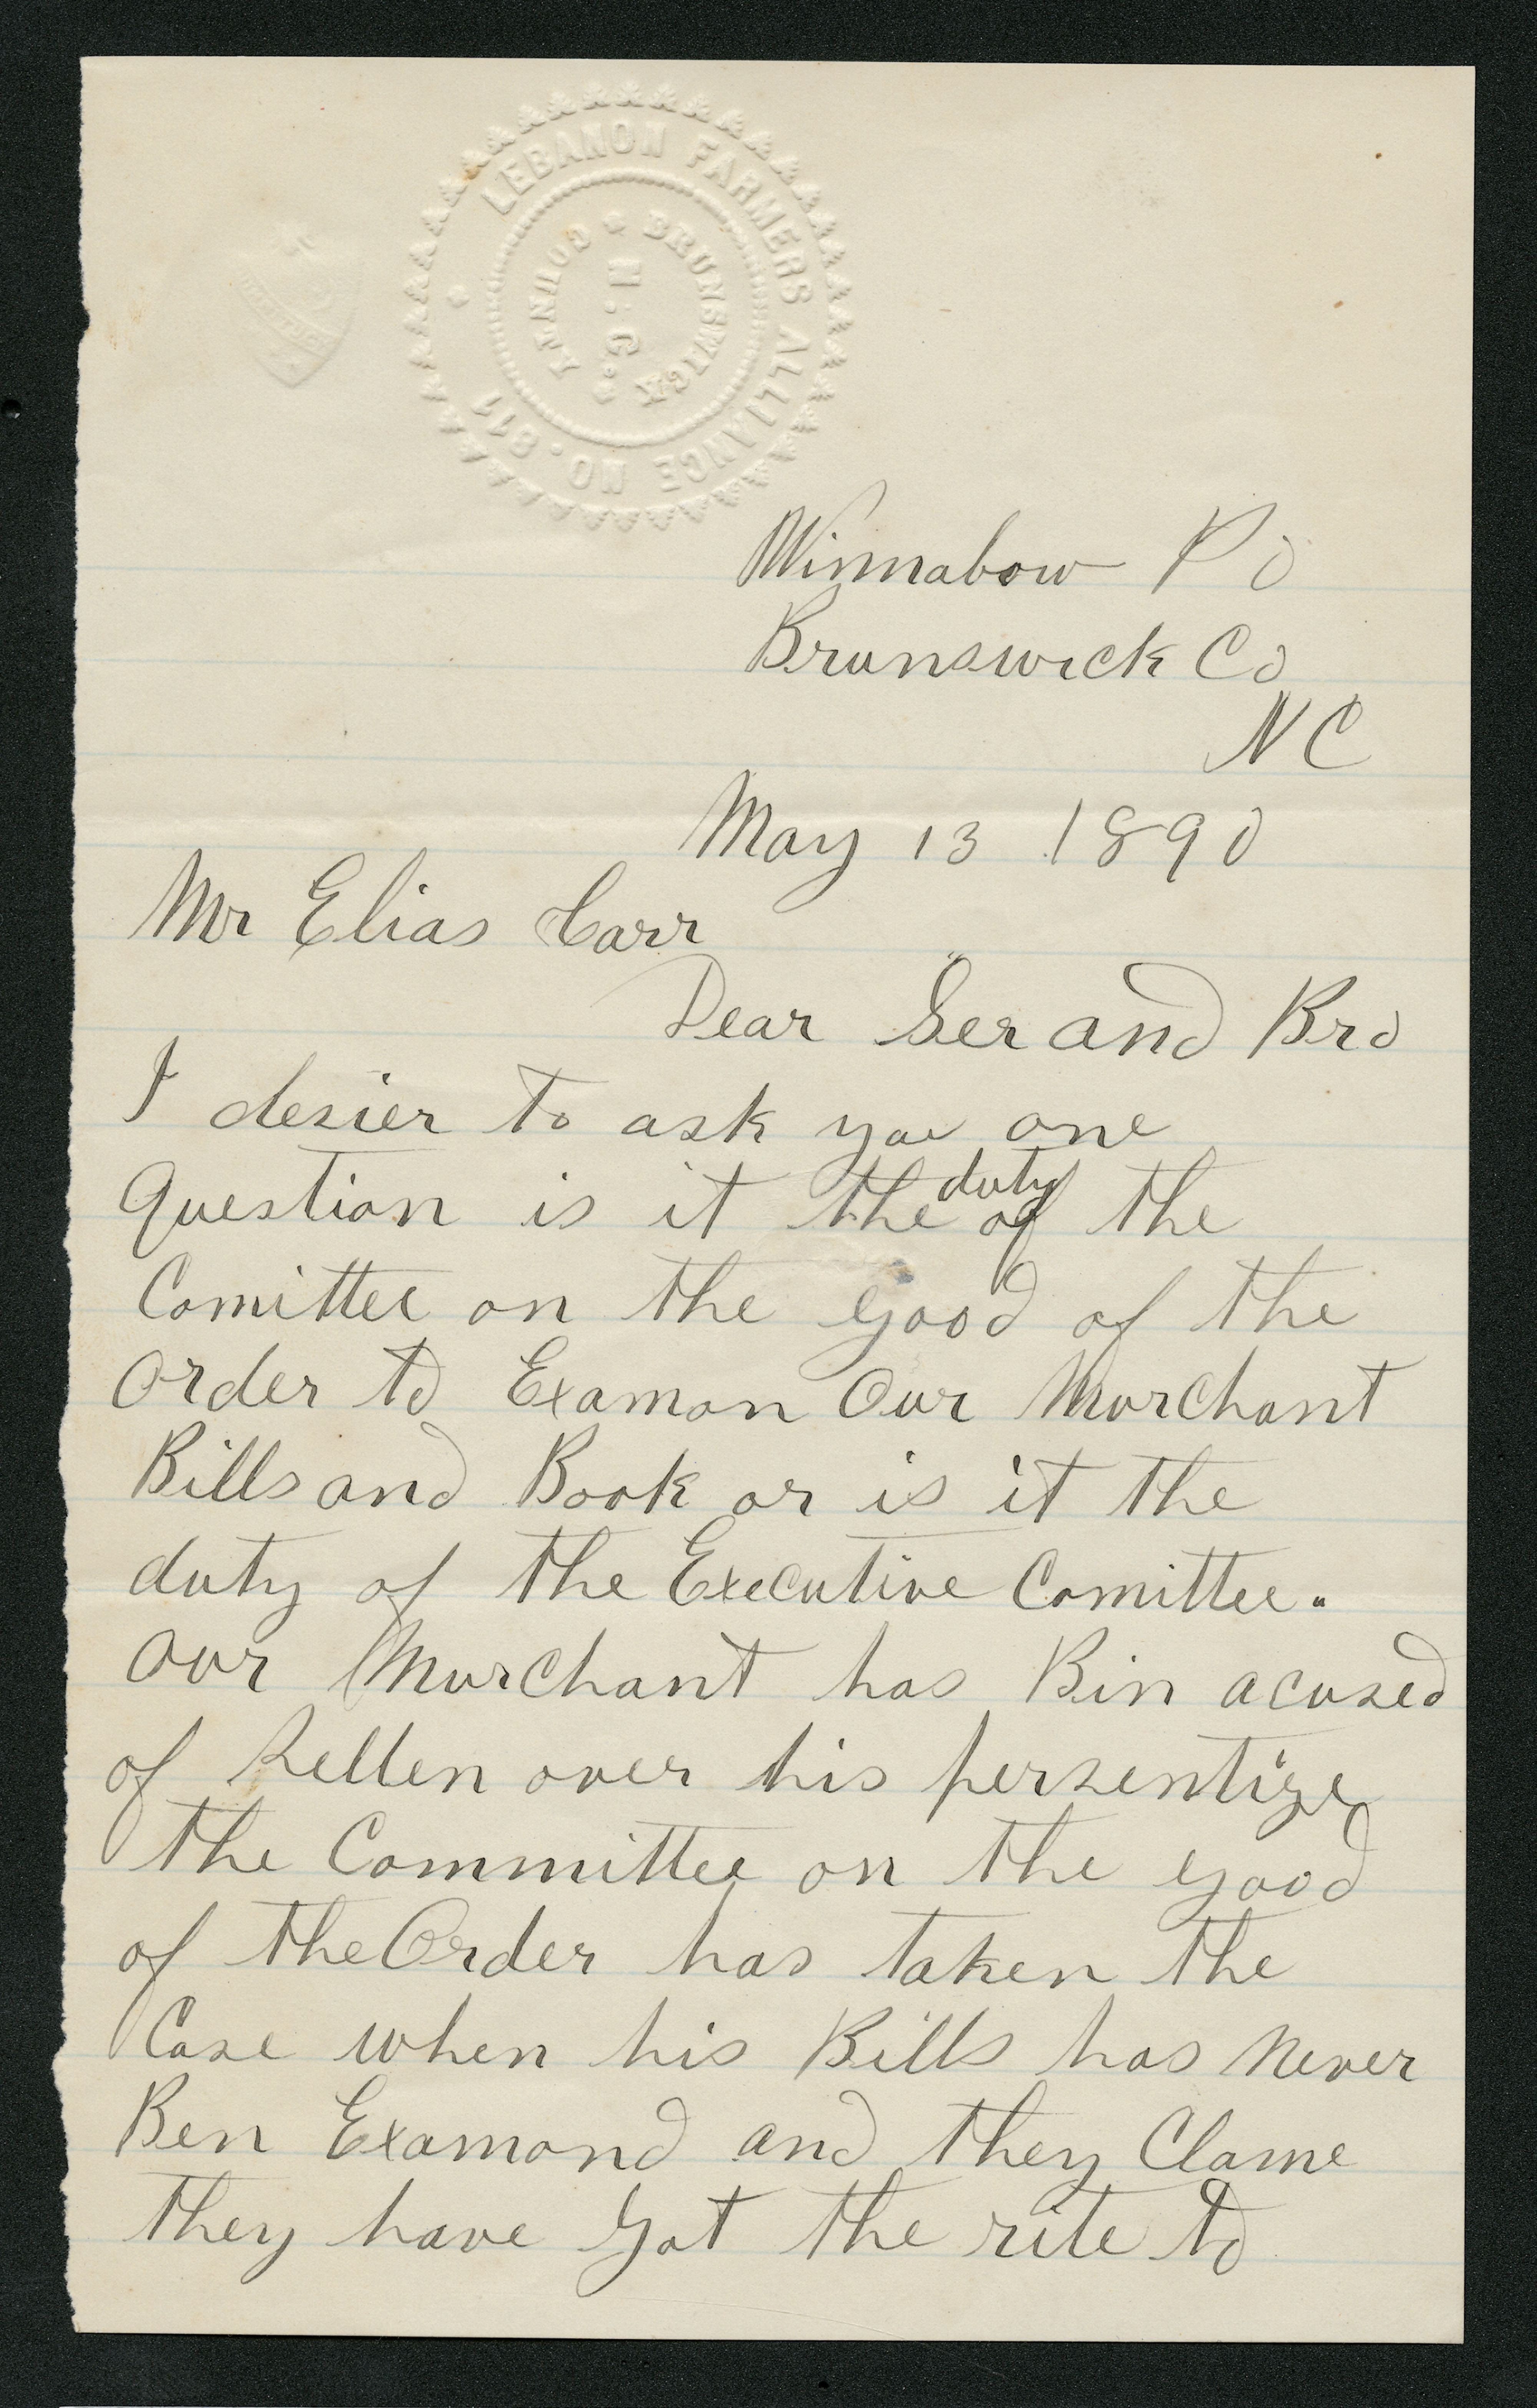 LEBANON FARMERS ALLIANCE NO. 811
BRUNSWICK COUNTY
N.C.
Winnabow P O
Brunswick Co
N C
May 13 1890
Mr Elias Carr
Dear Ser and Bro
I desier to ask you one
Question is it the duty of the
Comittee on the good of the
order to Examon Our Murchant
Bills and Book or is it the
duty of the Executive Comittee.
Our Murchant has Bin acused
of Sellen over his persentige
the Committee on the good
of the Order has taken the
Case when his Bills has never
Ben Examond and they Clame
they have got the rite to